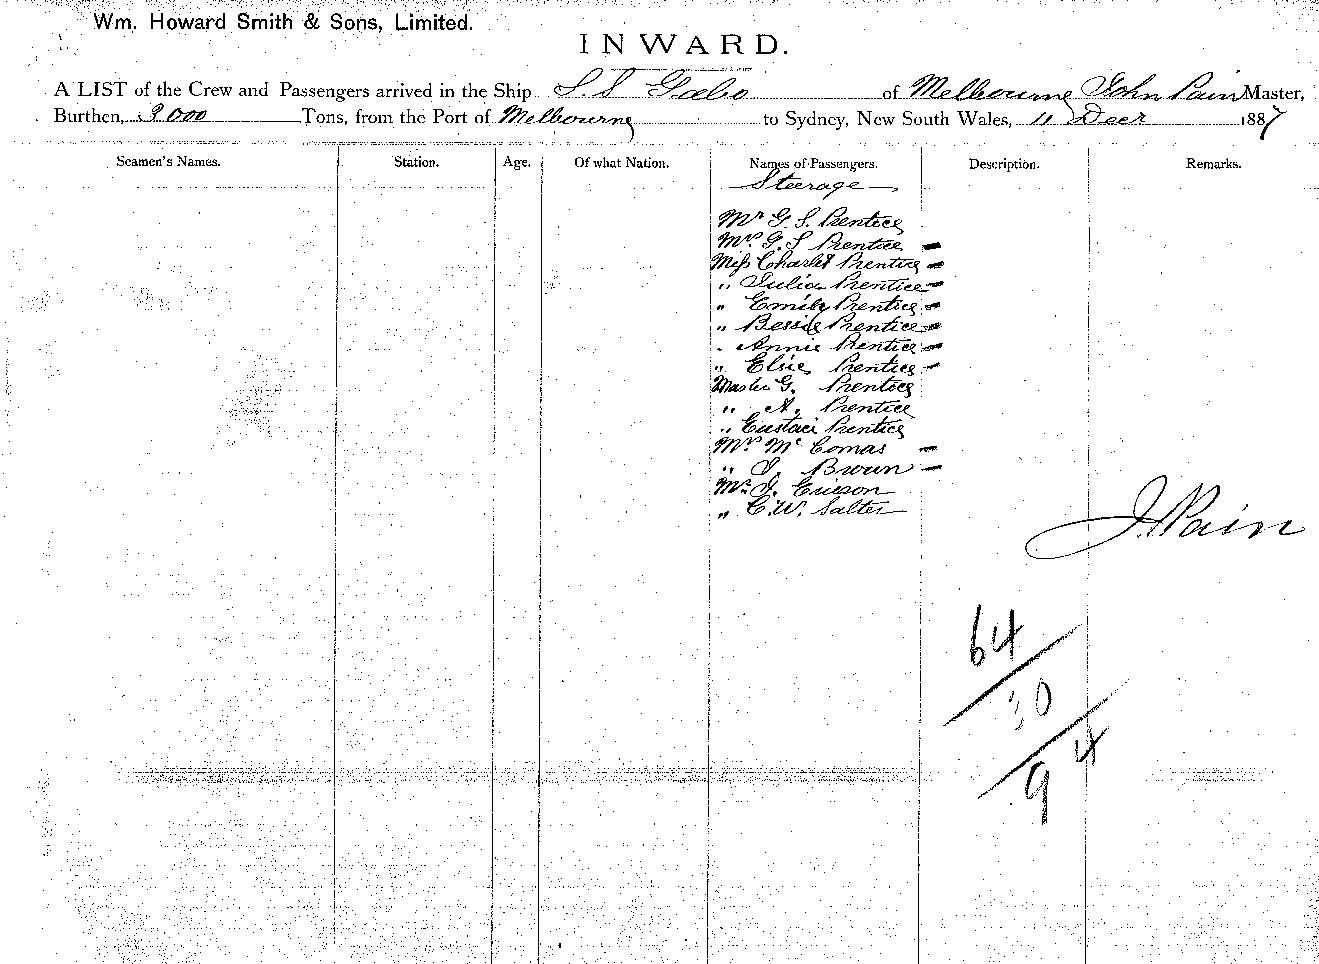 Wm. Howard Smith & Sons, Limited.
INWARD.
A LIST of the Crew and Passengers arrived in the Ship S.S Gabo of Melbourne John Pain Master,
Burthen, 2000 Tons, from the Port of Melbourne to Sydney, New South Wales, 11 Decr 1887
Seamen's Names. Station. Age. Of what Nation. Names of Passengers. Description. Remarks.
Steerage
Mr G. S. Prentice
Mrs G. S Prentice -
Miss Charlet Prentice -
" Julia Prentice -
" Emily Prentice -
" Bessie Prentice -
" Annie Prentice -
" Elsie Prentice -
Master G. Prentice
" A. Prentice
" Eustace Prentice
Mrs Mc Comas -
" J. Brown -
Mr J. Ericson
" C. W. Salter
J. Pain
64
30
94